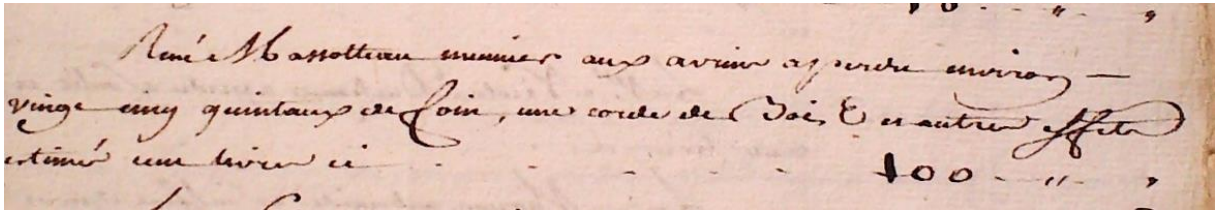 10 - " "
René Massotteau meunier aux avirin a perdu environ —
vingt cinq quintaux de foin, une corde de Bois & et autres effets
estimés cent livres ci - - - - 100 - " "